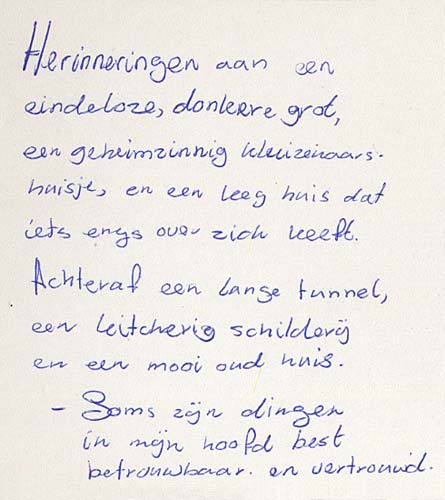 Herinneringen aan een
eindeloze, donkere grot,
een geheimzinnig kluizenaars-
huisje, en een leeg huis dat
iets engs over zich heeft.
Achteraf een lange tunnel,
een kitcherig schilderij
en een mooi oud huis.
- Soms zijn dingen
in mijn hoofd best
betrouwbaar. en vertrouwd.